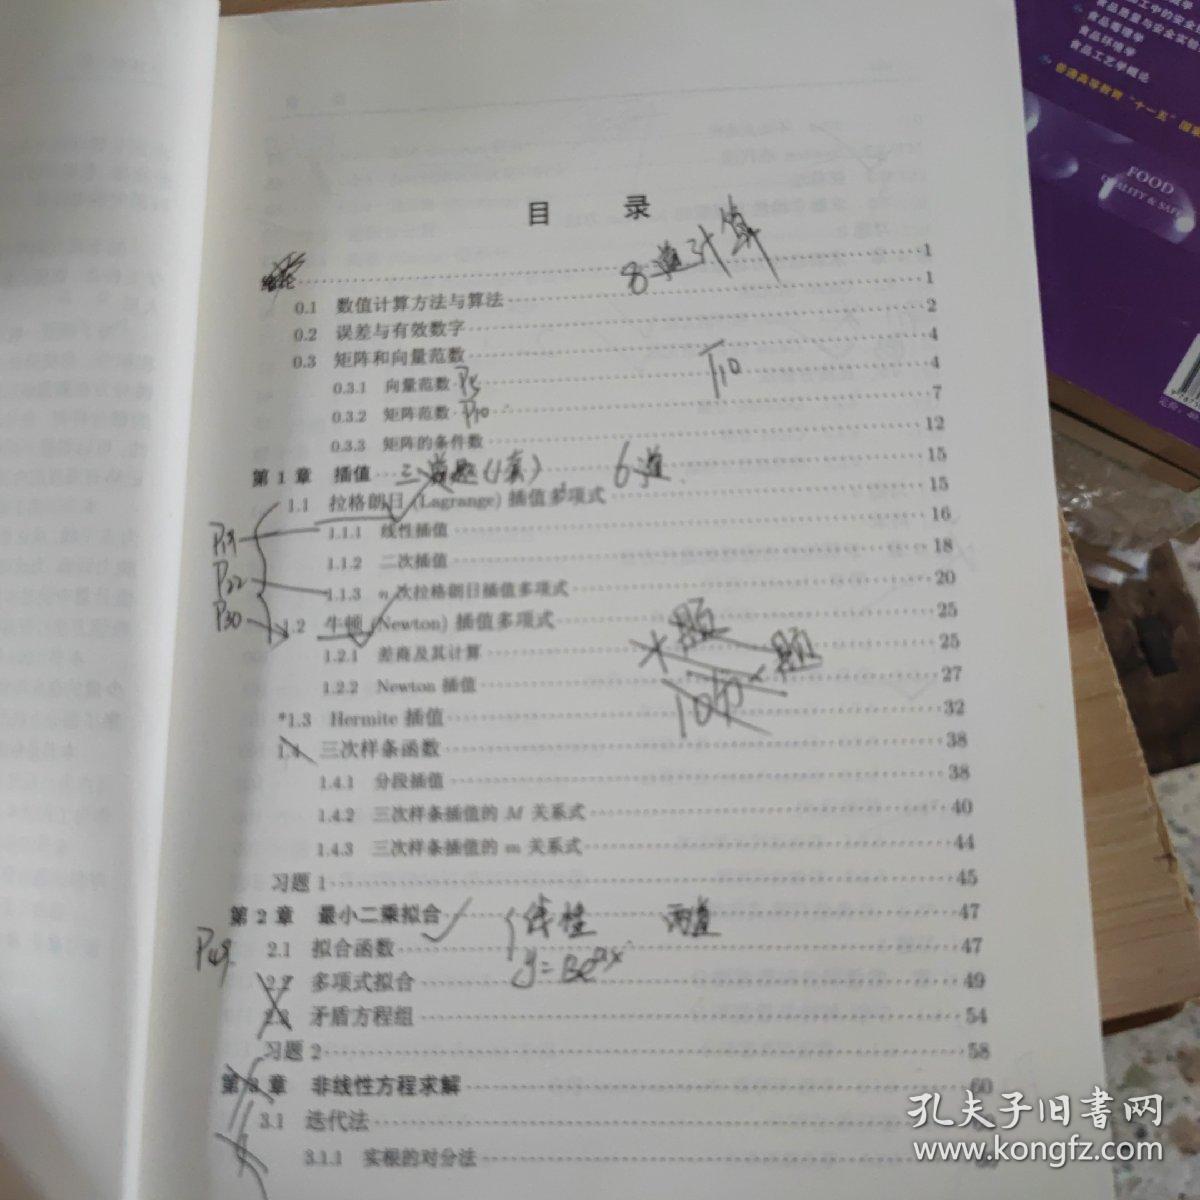 食品质量与安全实验
食品毒理学
食品环境学
食品工艺学概论
普通高等教育“十一五”国家
FOOD
QUALITY & SAFE
目 录
8道计算
绪论 1
0.1 数值计算方法与算法 1
0.2 误差与有效数字 2
0.3 矩阵和向量范数 4
0.3.1 向量范数 P5 4
0.3.2 矩阵范数 P10 7
P10
0.3.3 矩阵的条件数 12
第 1 章 插值 三道题 6道 15
1.1 拉格朗日 (Lagrange) 插值多项式 15
P19
1.1.1 线性插值 16
1.1.2 二次插值 18
P22
1.1.3 n 次拉格朗日插值多项式 20
P30
1.2 牛顿 (Newton) 插值多项式 25
1.2.1 差商及其计算 25
1.2.2 Newton 插值 27
*1.3 Hermite 插值 32
1.4 三次样条函数 38
1.4.1 分段插值 38
1.4.2 三次样条插值的 M 关系式 40
1.4.3 三次样条插值的 m 关系式 44
习题 1 45
第 2 章 最小二乘拟合 线性 两道 47
P49
2.1 拟合函数 47
y=Be^ax
2.2 多项式拟合 49
2.3 矛盾方程组 54
习题 2 58
第 3 章 非线性方程求解 60
3.1 迭代法
3.1.1 实根的对分法
孔夫子旧书网
www.kongfz.com